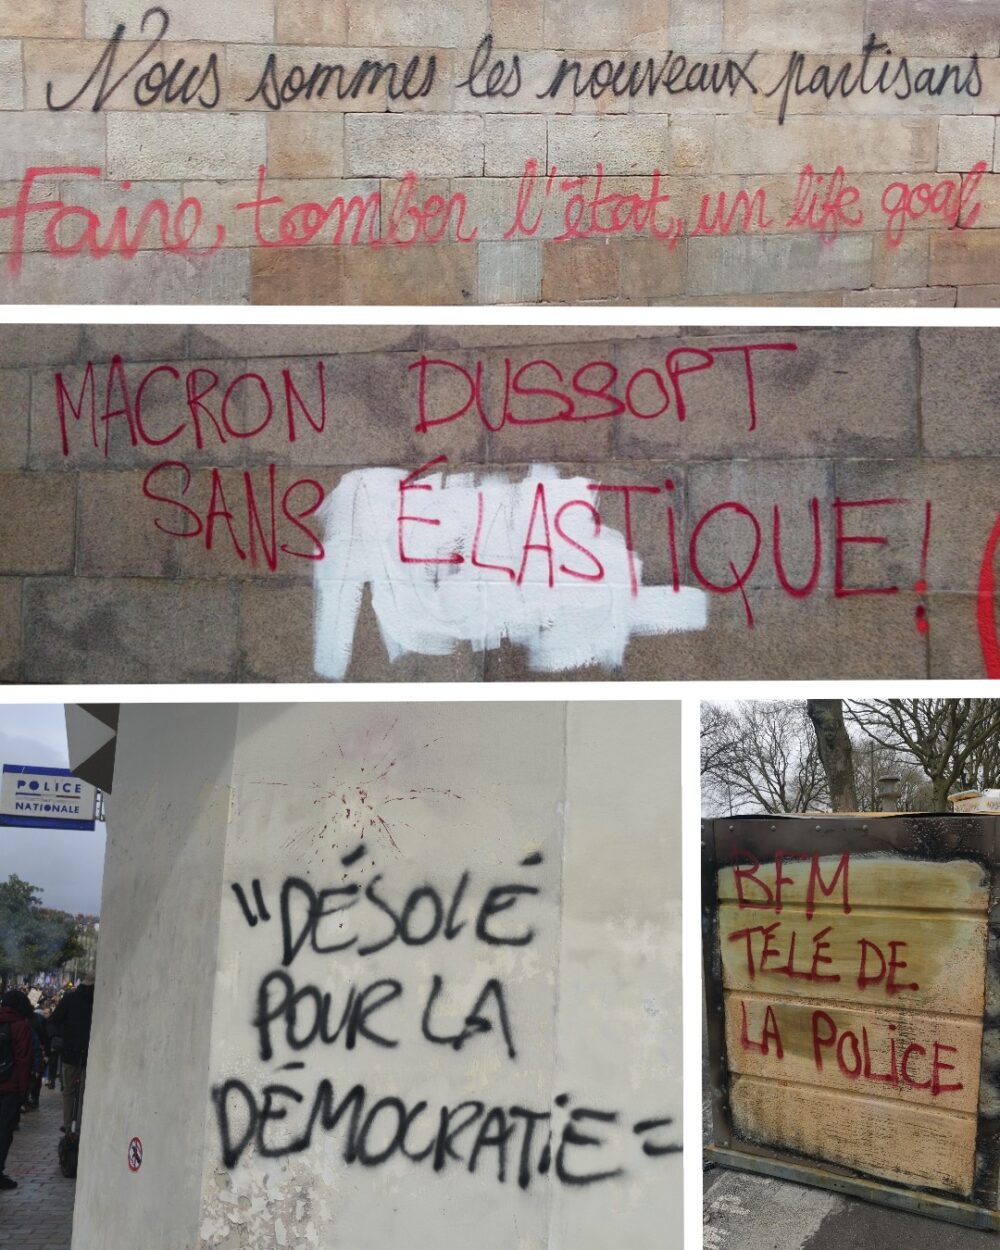 Nous sommes les nouveaux partisans
Faire tomber l'état, un life goal
MACRON DUSSOPT
SANS ÉLASTIQUE!
POLICE
NATIONALE
"DÉSOLÉ
POUR LA
DÉMOCRATIE"
BFM
TÉLÉ DE
LA POLICE